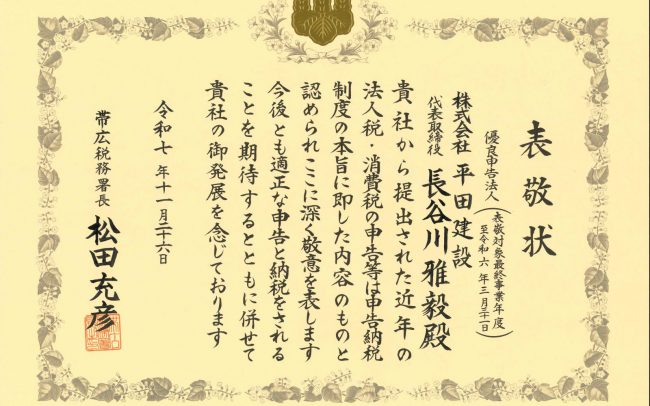 表敬状
優良申告法人
(表敬対象最終事業年度
至令和六年三月三十一日)
株式会社 平田建設
代表取締役 長谷川雅毅殿
貴社から提出された近年の
法人税・消費税の申告等は申告納税
制度の本旨に即した内容のものと
認められここに深く敬意を表します
今後とも適正な申告と納税をされる
ことを期待するとともに併せて
貴社の御発展を念じております
令和七年十一月二十六日
帯広税務署長 松田充彦